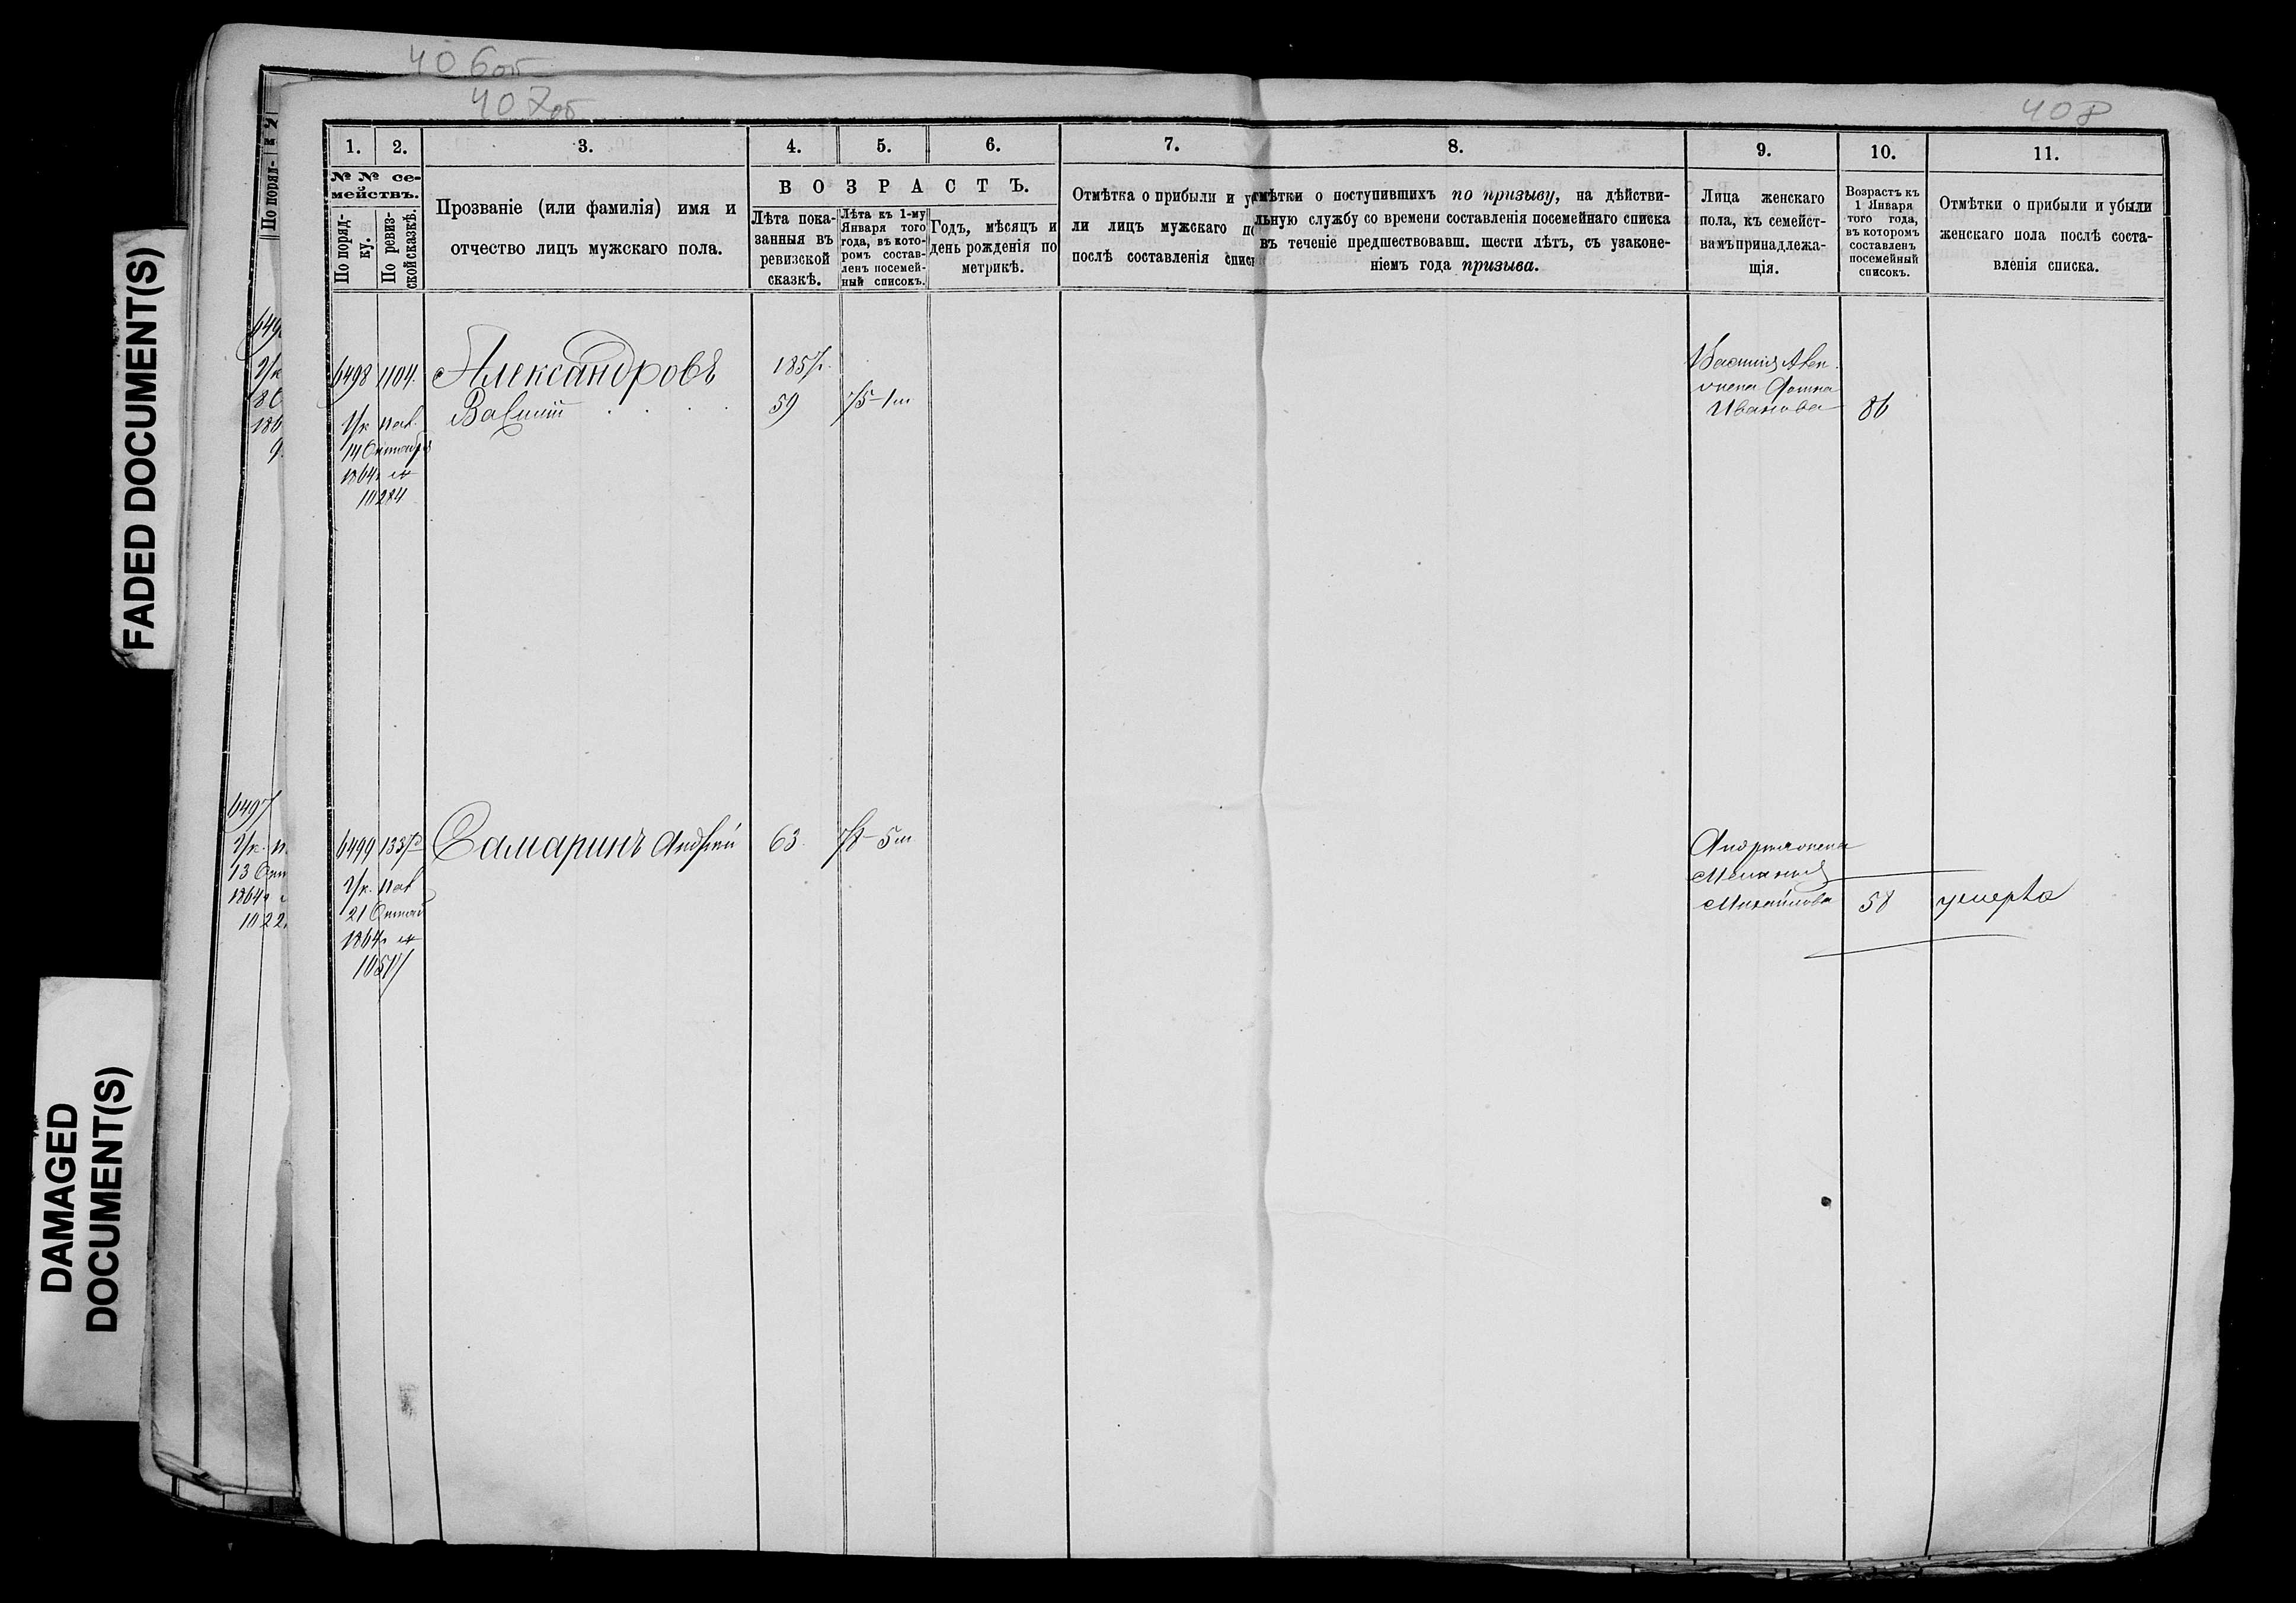 406об
407об
408
FADED DOCUMENT(S)
DAMAGED
DOCUMENT(S)
По поряд-
1. 2. 3. 4. 5. 6. 7. 8. 9. 10. 11.
№ № се-
мействъ.
По поряд-
ку.
По ревиз-
ской сказкѣ.
Прозваніе (или фамилія) имя и
отчество лицъ мужскаго пола.
ВОЗРАСТЪ.
Лѣта пока-
занныя въ
ревизской
сказкѣ.
Лѣта къ 1-му
Января того
года, въ кото-
ромъ состав-
ленъ посемей-
ный списокъ.
Годъ, мѣсяцъ и
день рожденія по
метрикѣ.
Отмѣтка о прибыли и у
ли лицъ мужскаго по
послѣ составленія спис
мѣтки о поступившихъ по призыву, на дѣйстви-
льную службу со времени составленія посемейнаго списка
въ теченіе предшествовавш. шести лѣтъ, съ узаконе-
ніемъ года призыва.
Лица женскаго
пола, къ семейст-
вамъ принадлежа-
щія.
Возрастъ къ
1 Января
того года,
въ которомъ
составленъ
посемейный
списокъ.
Отмѣтки о прибыли и убыли
женскаго пола послѣ соста-
вленія списка.
6498 1104. Александровъ 185
Василій 59 75-1 м
14 Октября
1864 г
10284
Домна
Ивановa 86
6499 Самаринъ Андрей 63 5 м
21
1864 г
Михайлова 58 умерла
6497
13
1864 г